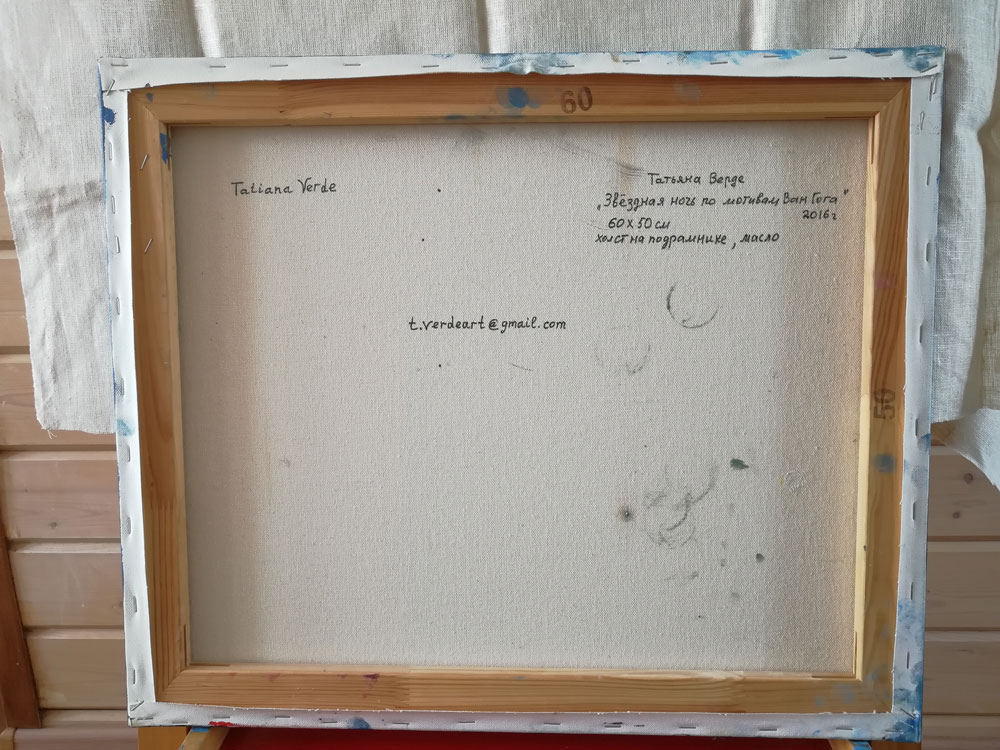 60
Tatiana Verde
Татьяна Верде
„Звёздная ночь по мотивам Ван Гога"
2016г
60 х 50 см
холст на подрамнике, масло
t.verdeart@gmail.com
50